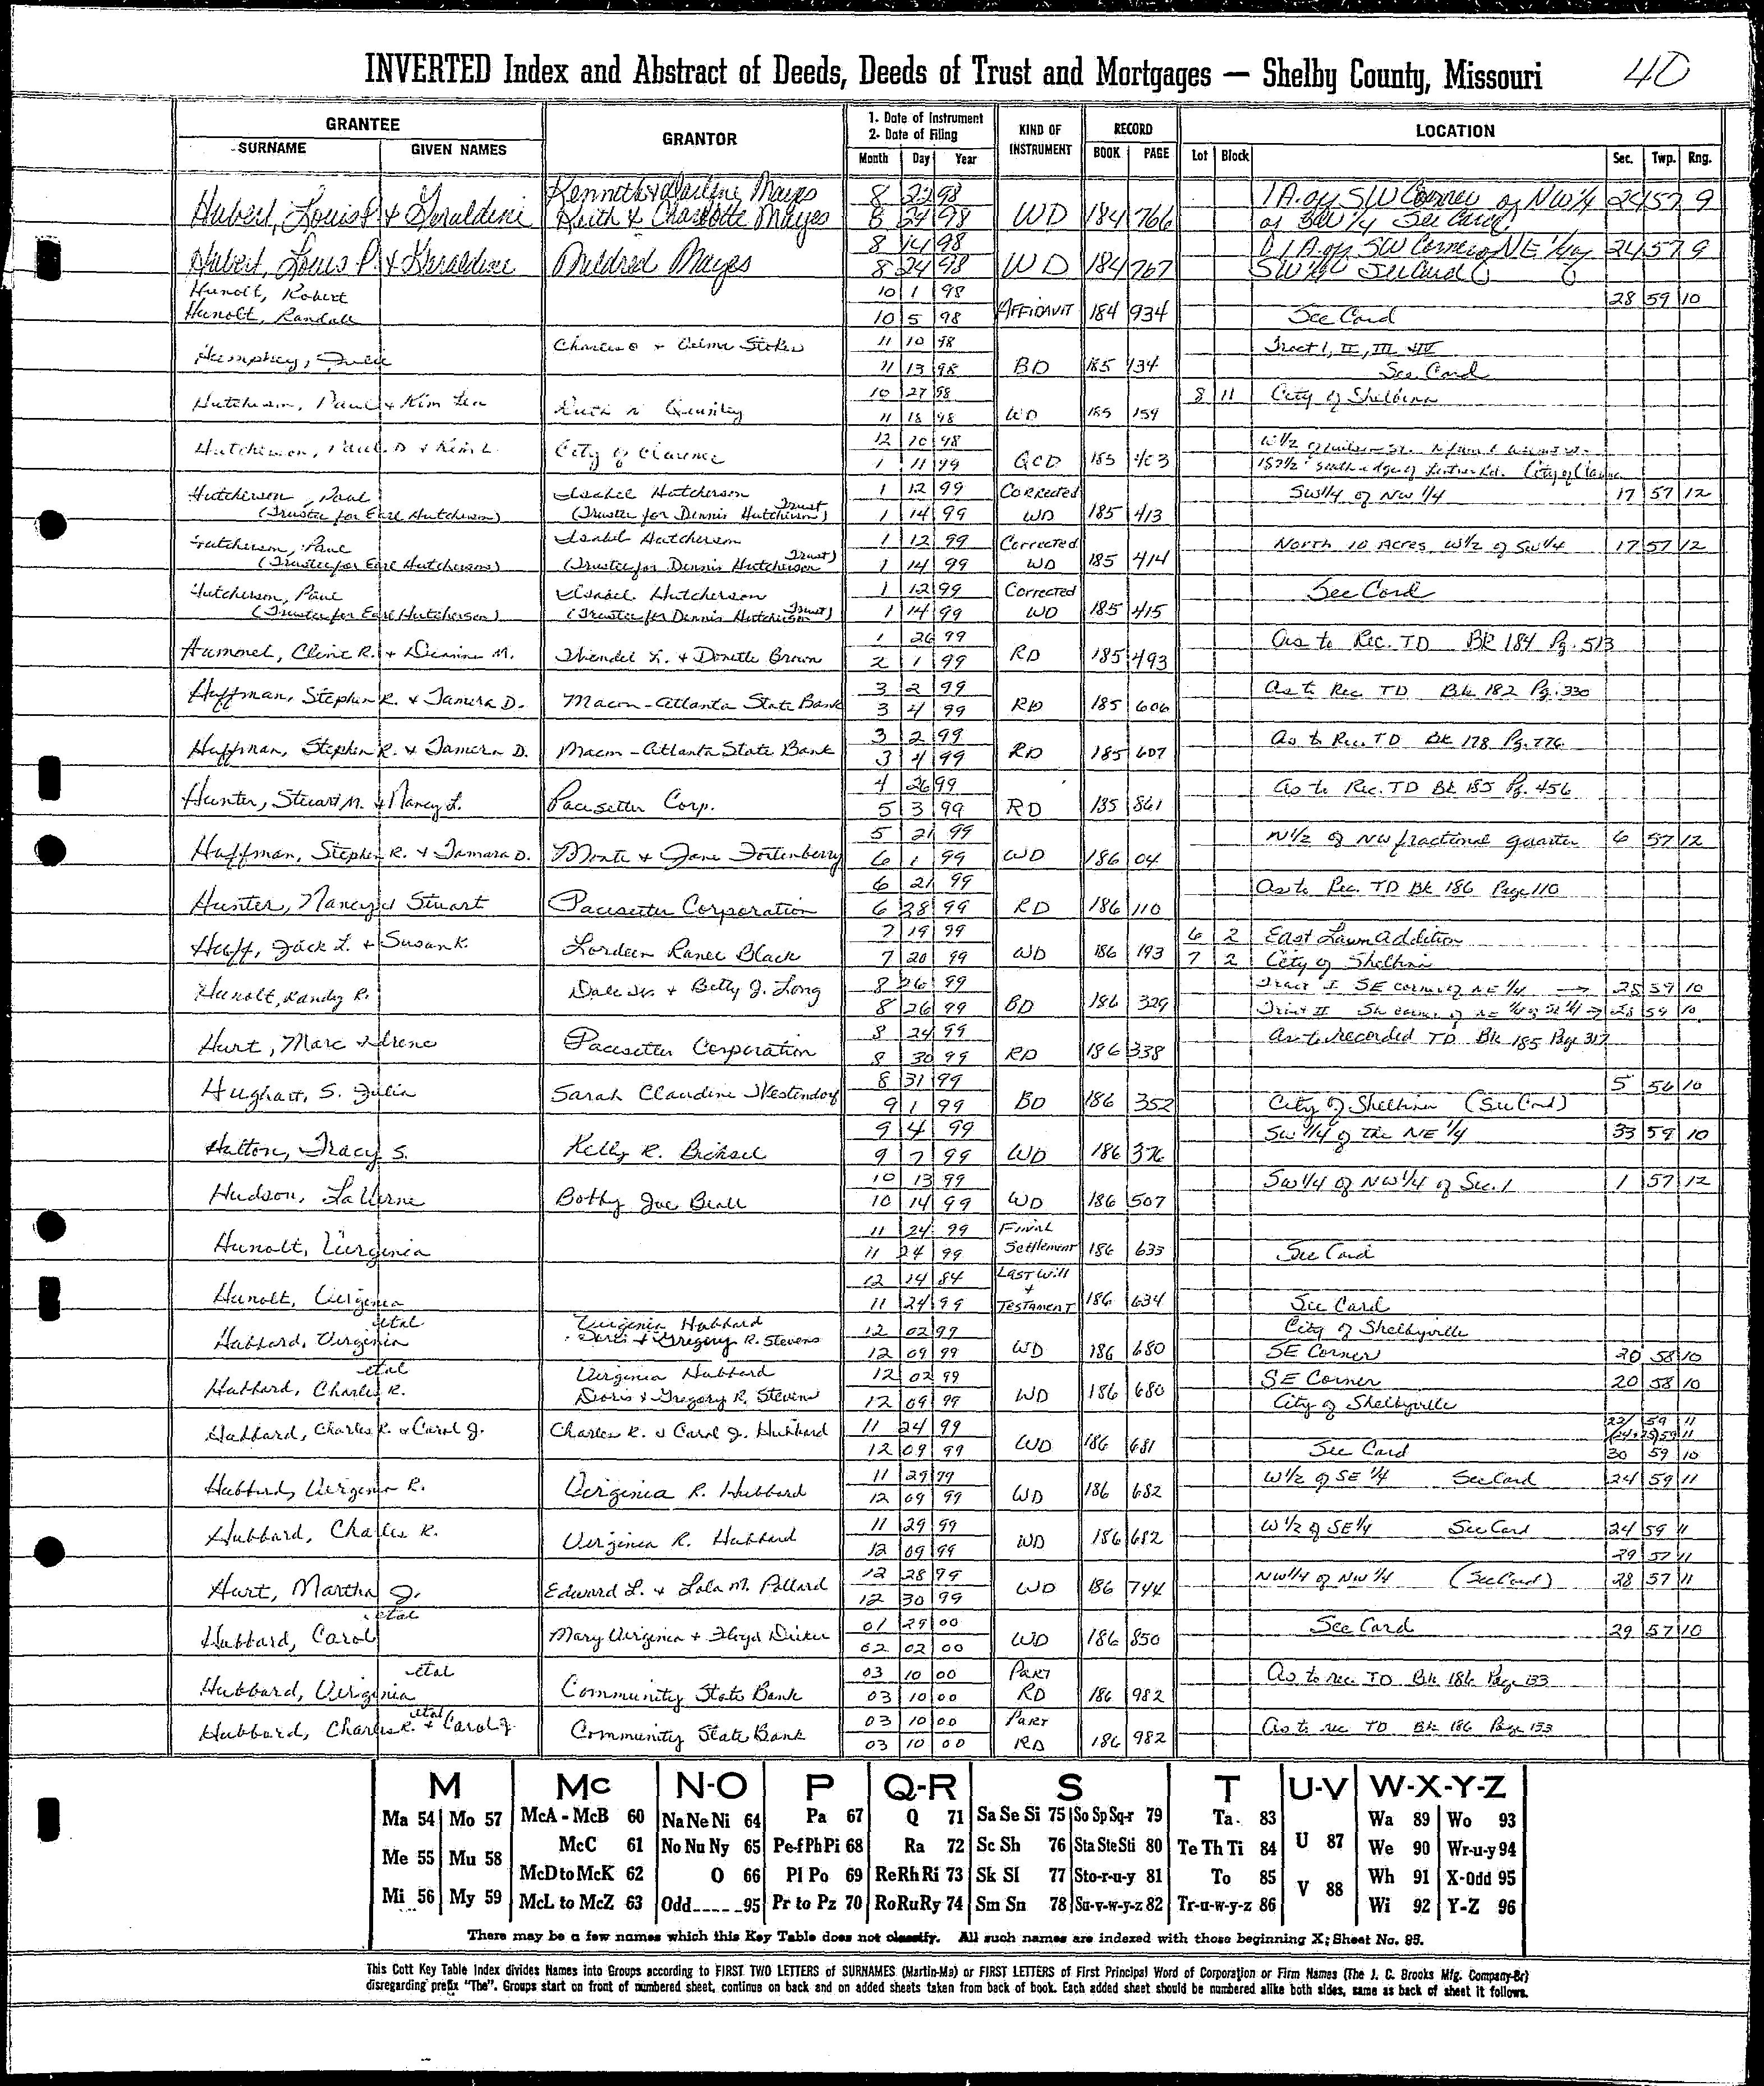 INVERTED Index and Abstract of Deeds, Deeds of Trust and Mortgages — Shelby County, Missouri 40
GRANTEE GRANTOR 1. Date of Instrument 2. Date of Filing KIND OF INSTRUMENT RECORD LOCATION
SURNAME GIVEN NAMES Month Day Year BOOK PAGE Lot Block Sec. Twp. Rng.
Kenneth & Darlene Mayes 8 22 98 1 A. off SW Corner of NW 1/4 24 57 9
Hubert, Louis P. & Geraldine Keith & Charlotte Mayes 8 24 98 WD 184 766 of SW 1/4 See Card
8 14 98 1 A off SW Corner of NE 1/4 of 24 57 9
Hubert, Louis P. & Geraldine Mildred Mayes 8 24 98 WD 184 767 SW 1/4 See Card
Hunolt, Robert 10 1 98 28 59 10
Hunolt, Randall 10 5 98 AFFIDAVIT 184 934 See Card
Charles O & Velma Stokes 11 10 98 Tract I, II, III & IV
Humphrey, Julie 11 13 98 BD 185 134 See Card
10 27 98 8 11 City of Shelbina
Hutcherson, Paul & Kim Lea Ruth N 11 18 98 WD 185 159
12 10 98 W 1/2 of
Hutcherson, Paul D & Kim L City of Clarence 1 11 99 QCD 185 403 157 1/2' south edge of City of Clarence
Hutcherson, Paul Isabel Hutcherson 1 12 99 Corrected SW 1/4 of NW 1/4 17 57 12
(Trustee for Earl Hutcherson) (Trustee for Dennis Hutcherson Trust) 1 14 99 WD 185 413
Hutcherson, Paul Isabel Hutcherson 1 12 99 Corrected North 10 Acres W 1/2 of SW 1/4 17 57 12
(Trustee for Earl Hutcherson) (Trustee for Dennis Hutcherson Trust) 1 14 99 WD 185 414
Hutcherson, Paul Isabel Hutcherson 1 12 99 Corrected See Card
(Trustee for Earl Hutcherson) (Trustee for Dennis Hutcherson Trust) 1 14 99 WD 185 415
1 26 99 As to Rec. TD Bk 184 Pg. 513
Hummel, Cline R. & M. Wendel L. & Donette Brown 2 1 99 RD 185 493
3 2 99 As to Rec TD Bk 182 Pg. 330
Huffman, Stephen R. & Tamera D. Macon-Atlanta State Bank 3 4 99 RD 185 606
3 2 99 As to Rec. TD Bk 178 Pg. 776
Huffman, Stephen R. & Tamera D. Macon-Atlanta State Bank 3 4 99 RD 185 607
4 26 99 As to Rec. TD Bk 185 Pg. 456
Hunter, Stuart M. & Nancy L. Pacesetter Corp. 5 3 99 RD 185 861
5 21 99 N 1/2 of NW fractional quarter 6 57 12
Huffman, Stephen R. & Tamara D. Monte & Jane Fortenberry 6 1 99 WD 186 04
6 21 99 As to Rec. TD Bk 186 Page 110
Hunter, Nancy & Stuart Pacesetter Corporation 6 28 99 RD 186 110
7 19 99 6 2 East Lawn Addition
Huff, Jack L. & Susan K. Lordeen Ranee Black 7 20 99 WD 186 193 7 2 City of Shelbina
8 26 99 Tract I SE corner of NE 1/4 → 28 59 10
Hunolt, Randy R. Dale Jr. & Betty J. Long 8 26 99 BD 186 329 Tract II corner of NE 1/4 of SE 1/4 → 28 59 10
8 24 99 As to recorded TD Bk 185 Page 317
Hurt, Marc & Irene Pacesetter Corporation 8 30 99 RD 186 338
8 31 99 5 56 10
Hughart, S. Julia Sarah Claudine Westendorf 9 1 99 BD 186 352 City of Shelbina (See Card)
9 4 99 SW 1/4 of the NE 1/4 33 59 10
Hulton, Tracy S. Kelly R. Bichsel 9 7 99 WD 186 376
10 13 99 SW 1/4 of NW 1/4 of Sec. 1 1 57 12
Hudson, LaVerne Bobby Joe Beall 10 14 99 WD 186 507
11 24 99 Final
Hunolt, Virginia 11 24 99 Settlement 186 633 See Card
12 14 84 Last Will
Hunolt, Virginia 11 24 99 & Testament 186 634 See Card
etal Virginia Hubbard 12 02 99 City of Shelbyville
Hubbard, Virginia Doris & Gregory R. Stevens 12 09 99 WD 186 680 SE Corner 20 58 10
etal Virginia Hubbard 12 02 99 SE Corner 20 58 10
Hubbard, Charles R. Doris & Gregory R. Stevens 12 09 99 WD 186 680 City of Shelbyville
Hubbard, Charles R. & Carol J. Charles R. & Carol J. Hubbard 11 24 99 23 59 11
(24+25) 59 11
12 09 99 WD 186 681 See Card 30 59 10
11 29 99 W 1/2 of SE 1/4 See Card 24 59 11
Hubbard, Virginia R. Virginia R. Hubbard 12 09 99 WD 186 682
11 29 99 W 1/2 of SE 1/4 See Card 24 59 11
Hubbard, Charles R. Virginia R. Hubbard 12 09 99 WD 186 682
29 57 11
12 28 99 NW 1/4 of NW 1/4 (See Card) 28 57 11
Hurt, Martha J. Edward L. & Lola M. Pollard 12 30 99 WD 186 744
etal 01 29 00 See Card 29 57 10
Hubbard, Carol Mary Virginia & Floyd 02 02 00 WD 186 850
etal 03 10 00 Part As to rec. TD Bk 186 Page 133
Hubbard, Virginia Community State Bank 03 10 00 RD 186 982
etal 03 10 00 Part As to rec TD Bk 186 Page 133
Hubbard, Charles R. & Carol J Community State Bank 03 10 00 RD 186 982
M Mc N-O P Q-R S T U-V W-X-Y-Z
Ma 54 Mo 57 McA - McB 60 Na Ne Ni 64 Pa 67 Q 71 Sa Se Si 75 So Sp Sq-r 79 Ta. 83 Wa 89 Wo 93
Me 55 Mu 58 McC 61 No Nu Ny 65 Pe-f Ph Pi 68 Ra 72 Sc Sh 76 Sta Ste Sti 80 Te Th Ti 84 U 87 We 90 Wr-u-y 94
McD to McK 62 O 66 Pl Po 69 Re Rh Ri 73 Sk Sl 77 Sto-r-u-y 81 To 85 V 88 Wh 91 X-Odd 95
Mi 56 My 59 McL to McZ 63 Odd 95 Pr to Pz 70 Ro Ru Ry 74 Sm Sn 78 Su-v-w-y-z 82 Tr-u-w-y-z 86 Wi 92 Y-Z 96
There may be a few names which this Key Table does not classify. All such names are indexed with those beginning X; Sheet No. 95.
This Cott Key Table Index divides Names into Groups according to FIRST TWO LETTERS of SURNAMES (Martin-Ma) or FIRST LETTERS of First Principal Word of Corporation or Firm Names (The J. C. Brooks Mfg. Company-Br)
disregarding prefix "The". Groups start on front of numbered sheet, continue on back and on added sheets taken from back of book. Each added sheet should be numbered alike both sides, same as back of sheet it follows.